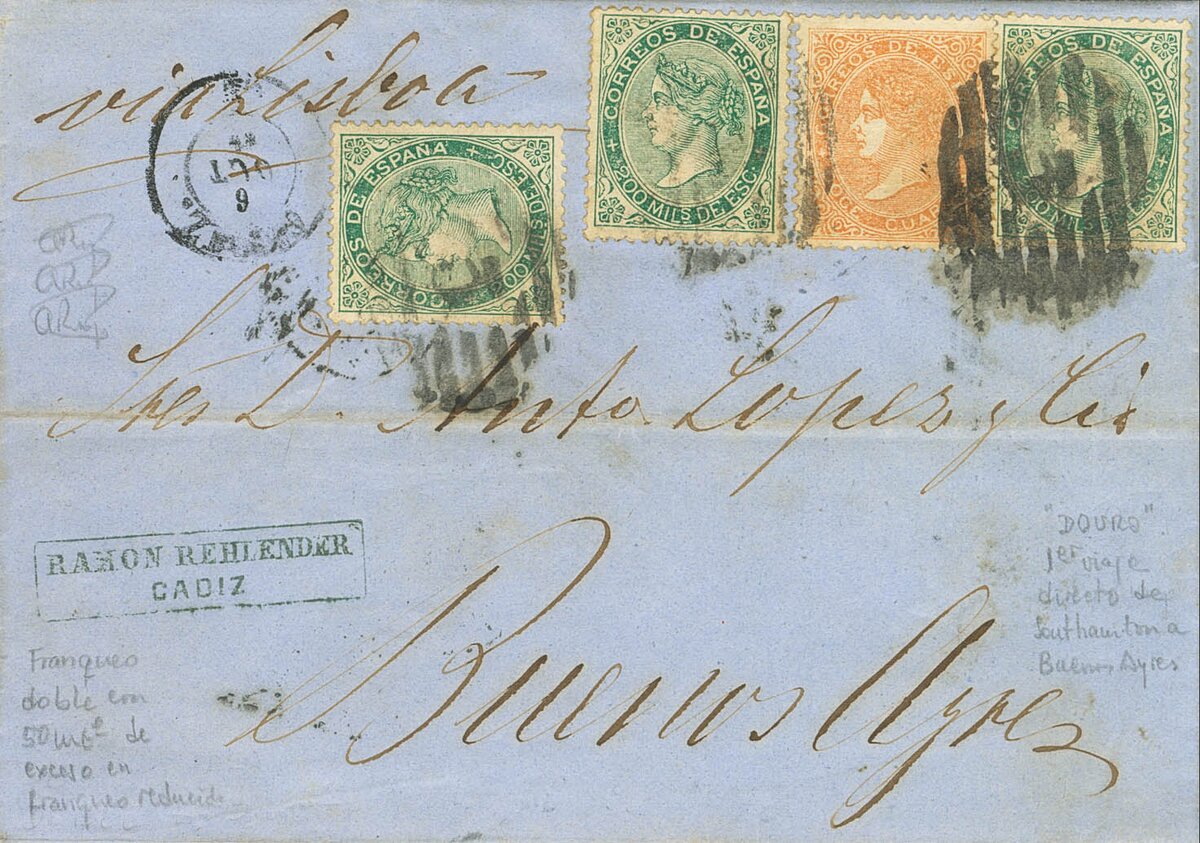 via Lisboa
OCT
9
CORREOS DE ESPAÑA
200 MILS DE ESC
CORREOS DE ESPAÑA
+ 200 MILS DE ESC. +
CORREOS DE E
CE CUAR
CORREOS DE ESPAÑA
200 MILS DE ESC
Sres D. Anto Lopez y Cia
RAMON REHLENDER
CADIZ
Buenos Ayres
"DOURO"
1er viaje
directo de
Southamton a
Buenos Ayres
Franqueo
doble con
50 mls de
exceso en
franqueo reducido